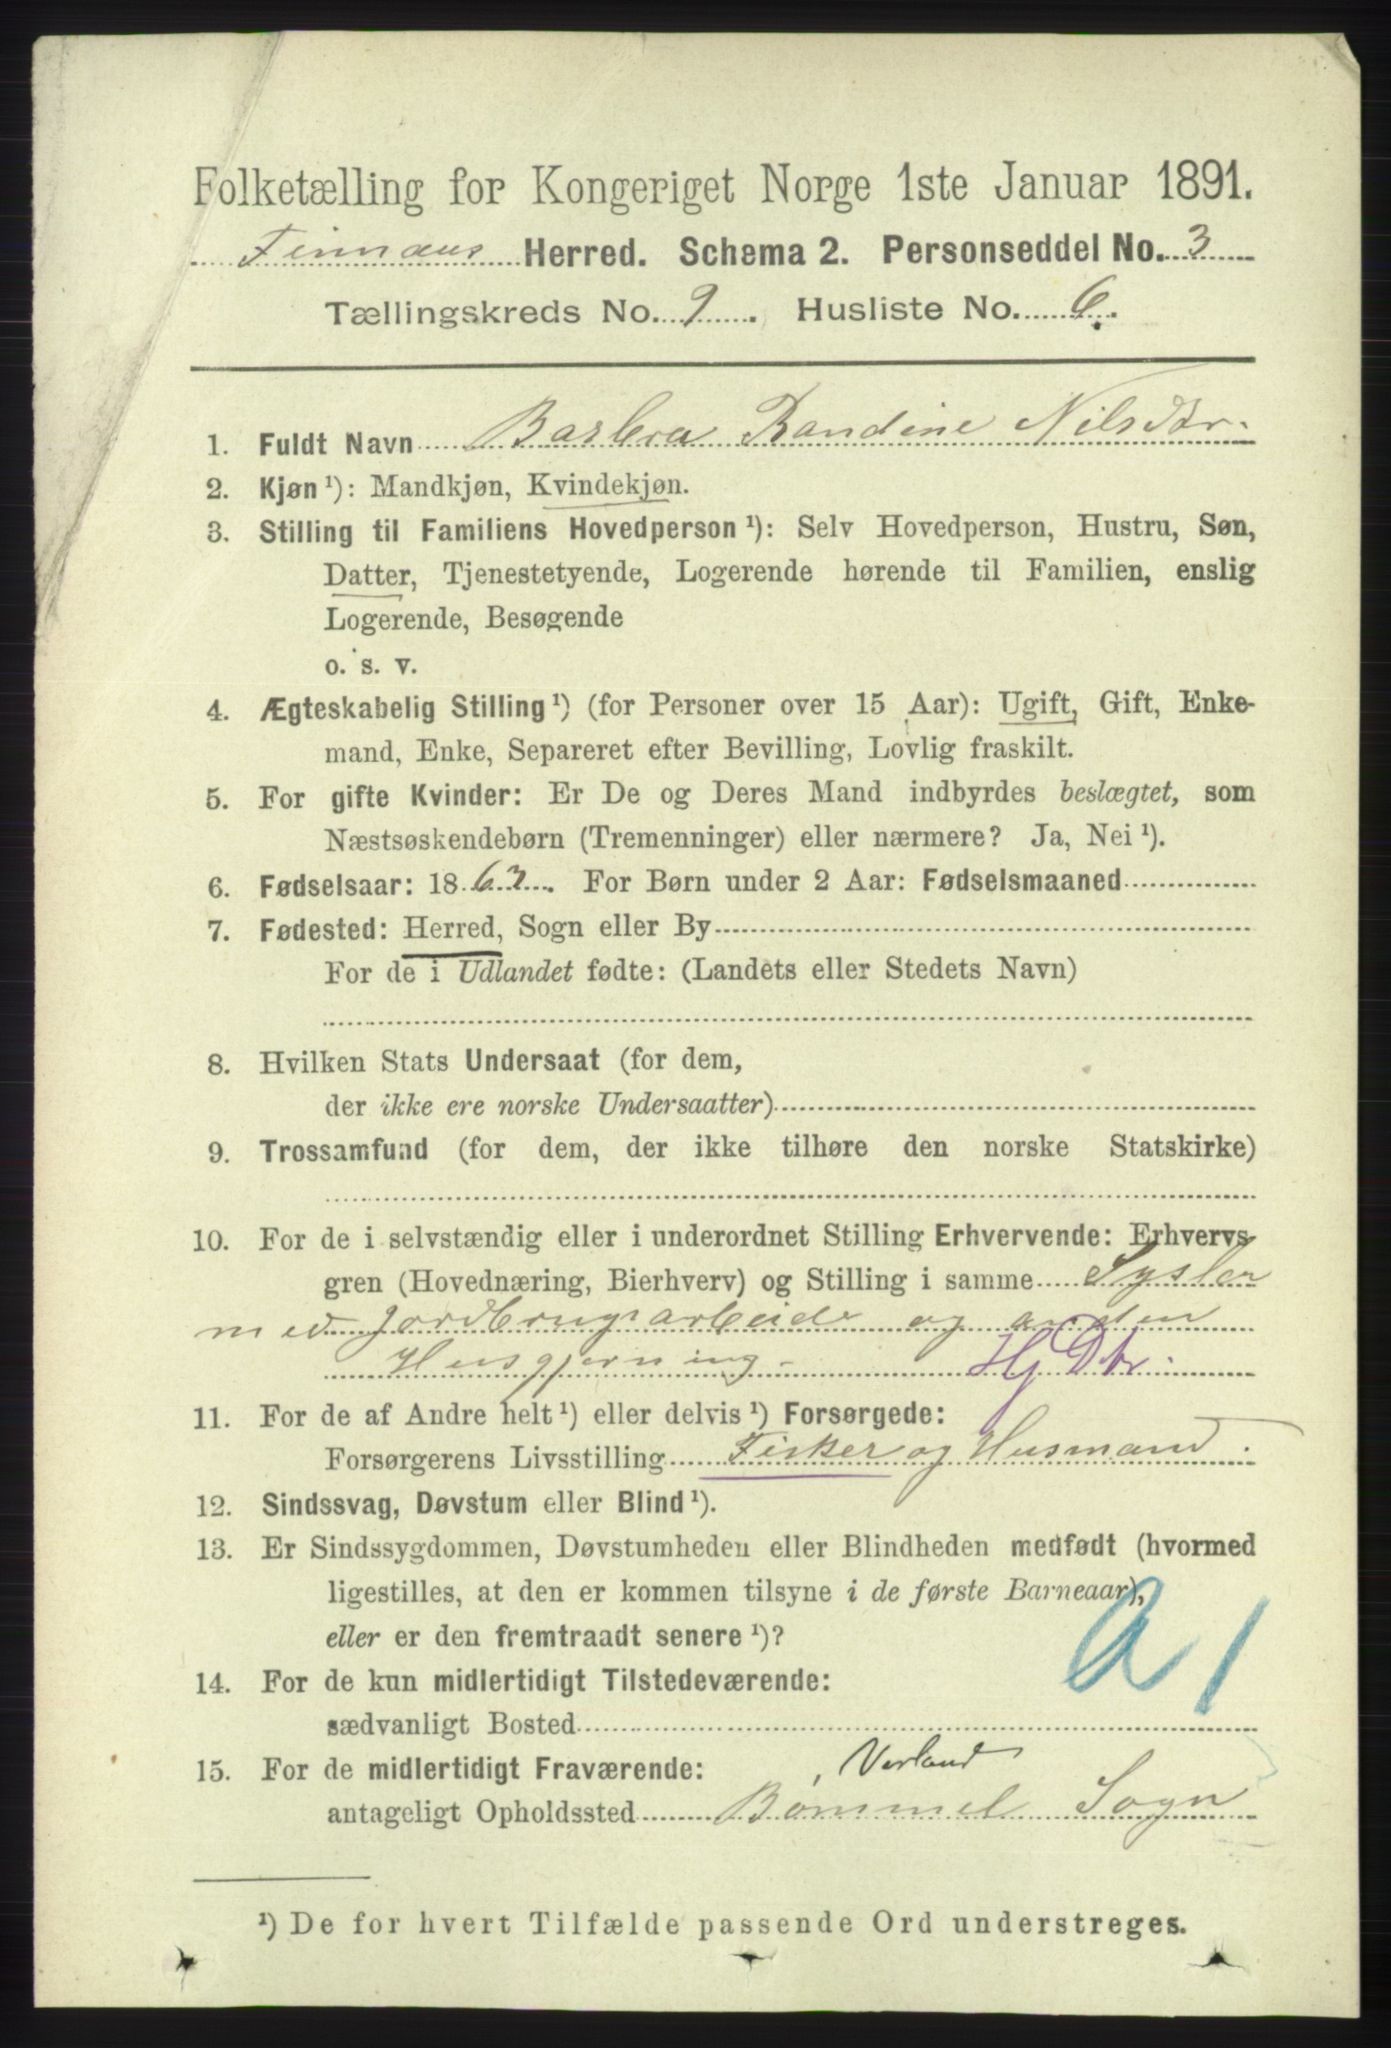 Folketælling for Kongeriget Norge 1ste Januar 1891.
Finnaas Herred. Schema 2. Personseddel No. 3
Tællingskreds No. 9. Husliste No. 6.
1. Fuldt Navn Barbra Randine Nilsdtr.
2. Kjøn ¹): Mandkjøn, Kvindekjøn.
3. Stilling til Familiens Hovedperson ¹): Selv Hovedperson, Hustru, Søn,
Datter, Tjenestetyende, Logerende hørende til Familien, enslig
Logerende, Besøgende
o. s. v.
4. Ægteskabelig Stilling ¹) (for Personer over 15 Aar): Ugift, Gift, Enke-
mand, Enke, Separeret efter Bevilling, Lovlig fraskilt.
5. For gifte Kvinder: Er De og Deres Mand indbyrdes beslægtet, som
Næstsøskendebørn (Tremenninger) eller nærmere? Ja, Nei ¹).
6. Fødselsaar: 1863. For Børn under 2 Aar: Fødselsmaaned
7. Fødested: Herred, Sogn eller By
For de i Udlandet fødte: (Landets eller Stedets Navn)
8. Hvilken Stats Undersaat (for dem,
der ikke ere norske Undersaatter)
9. Trossamfund (for dem, der ikke tilhøre den norske Statskirke)
10. For de i selvstændig eller i underordnet Stilling Erhvervende: Erhvervs-
gren (Hovednæring, Bierhverv) og Stilling i samme Sysler
med Jordbrugsarbeide og anden
Husgjerning. Hj Dtr.
11. For de af Andre helt ¹) eller delvis ¹) Forsørgede:
Forsørgerens Livsstilling Fisker og Husmand.
12. Sindssvag, Døvstum eller Blind ¹).
13. Er Sindssygdommen, Døvstumheden eller Blindheden medfødt (hvormed
ligestilles, at den er kommen tilsyne i de første Barneaar),
eller er den fremtraadt senere ¹)?
a 1
14. For de kun midlertidigt Tilstedeværende:
sædvanligt Bosted
15. For de midlertidigt Fraværende:
antageligt Opholdssted Bømmel Sogn
¹) De for hvert Tilfælde passende Ord understreges.